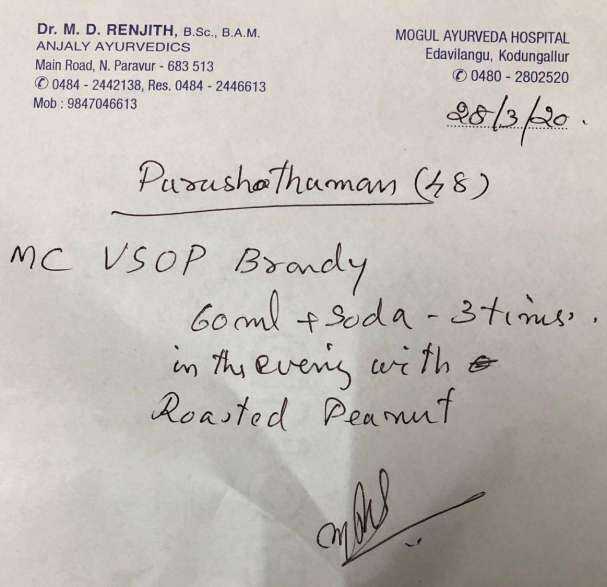 Dr. M. D. RENJITH, B.Sc., B.A.M.
ANJALY AYURVEDICS
Main Road, N. Paravur - 683 513
✆ 0484 - 2442138, Res. 0484 - 2446613
Mob : 9847046613
MOGUL AYURVEDA HOSPITAL
Edavilangu, Kodungallur
✆ 0480 - 2802520
28/3/20.
Purushothaman (48)
MC VSOP Brandy
60ml + Soda - 3 times.
in the evenig with
Roasted Peanut